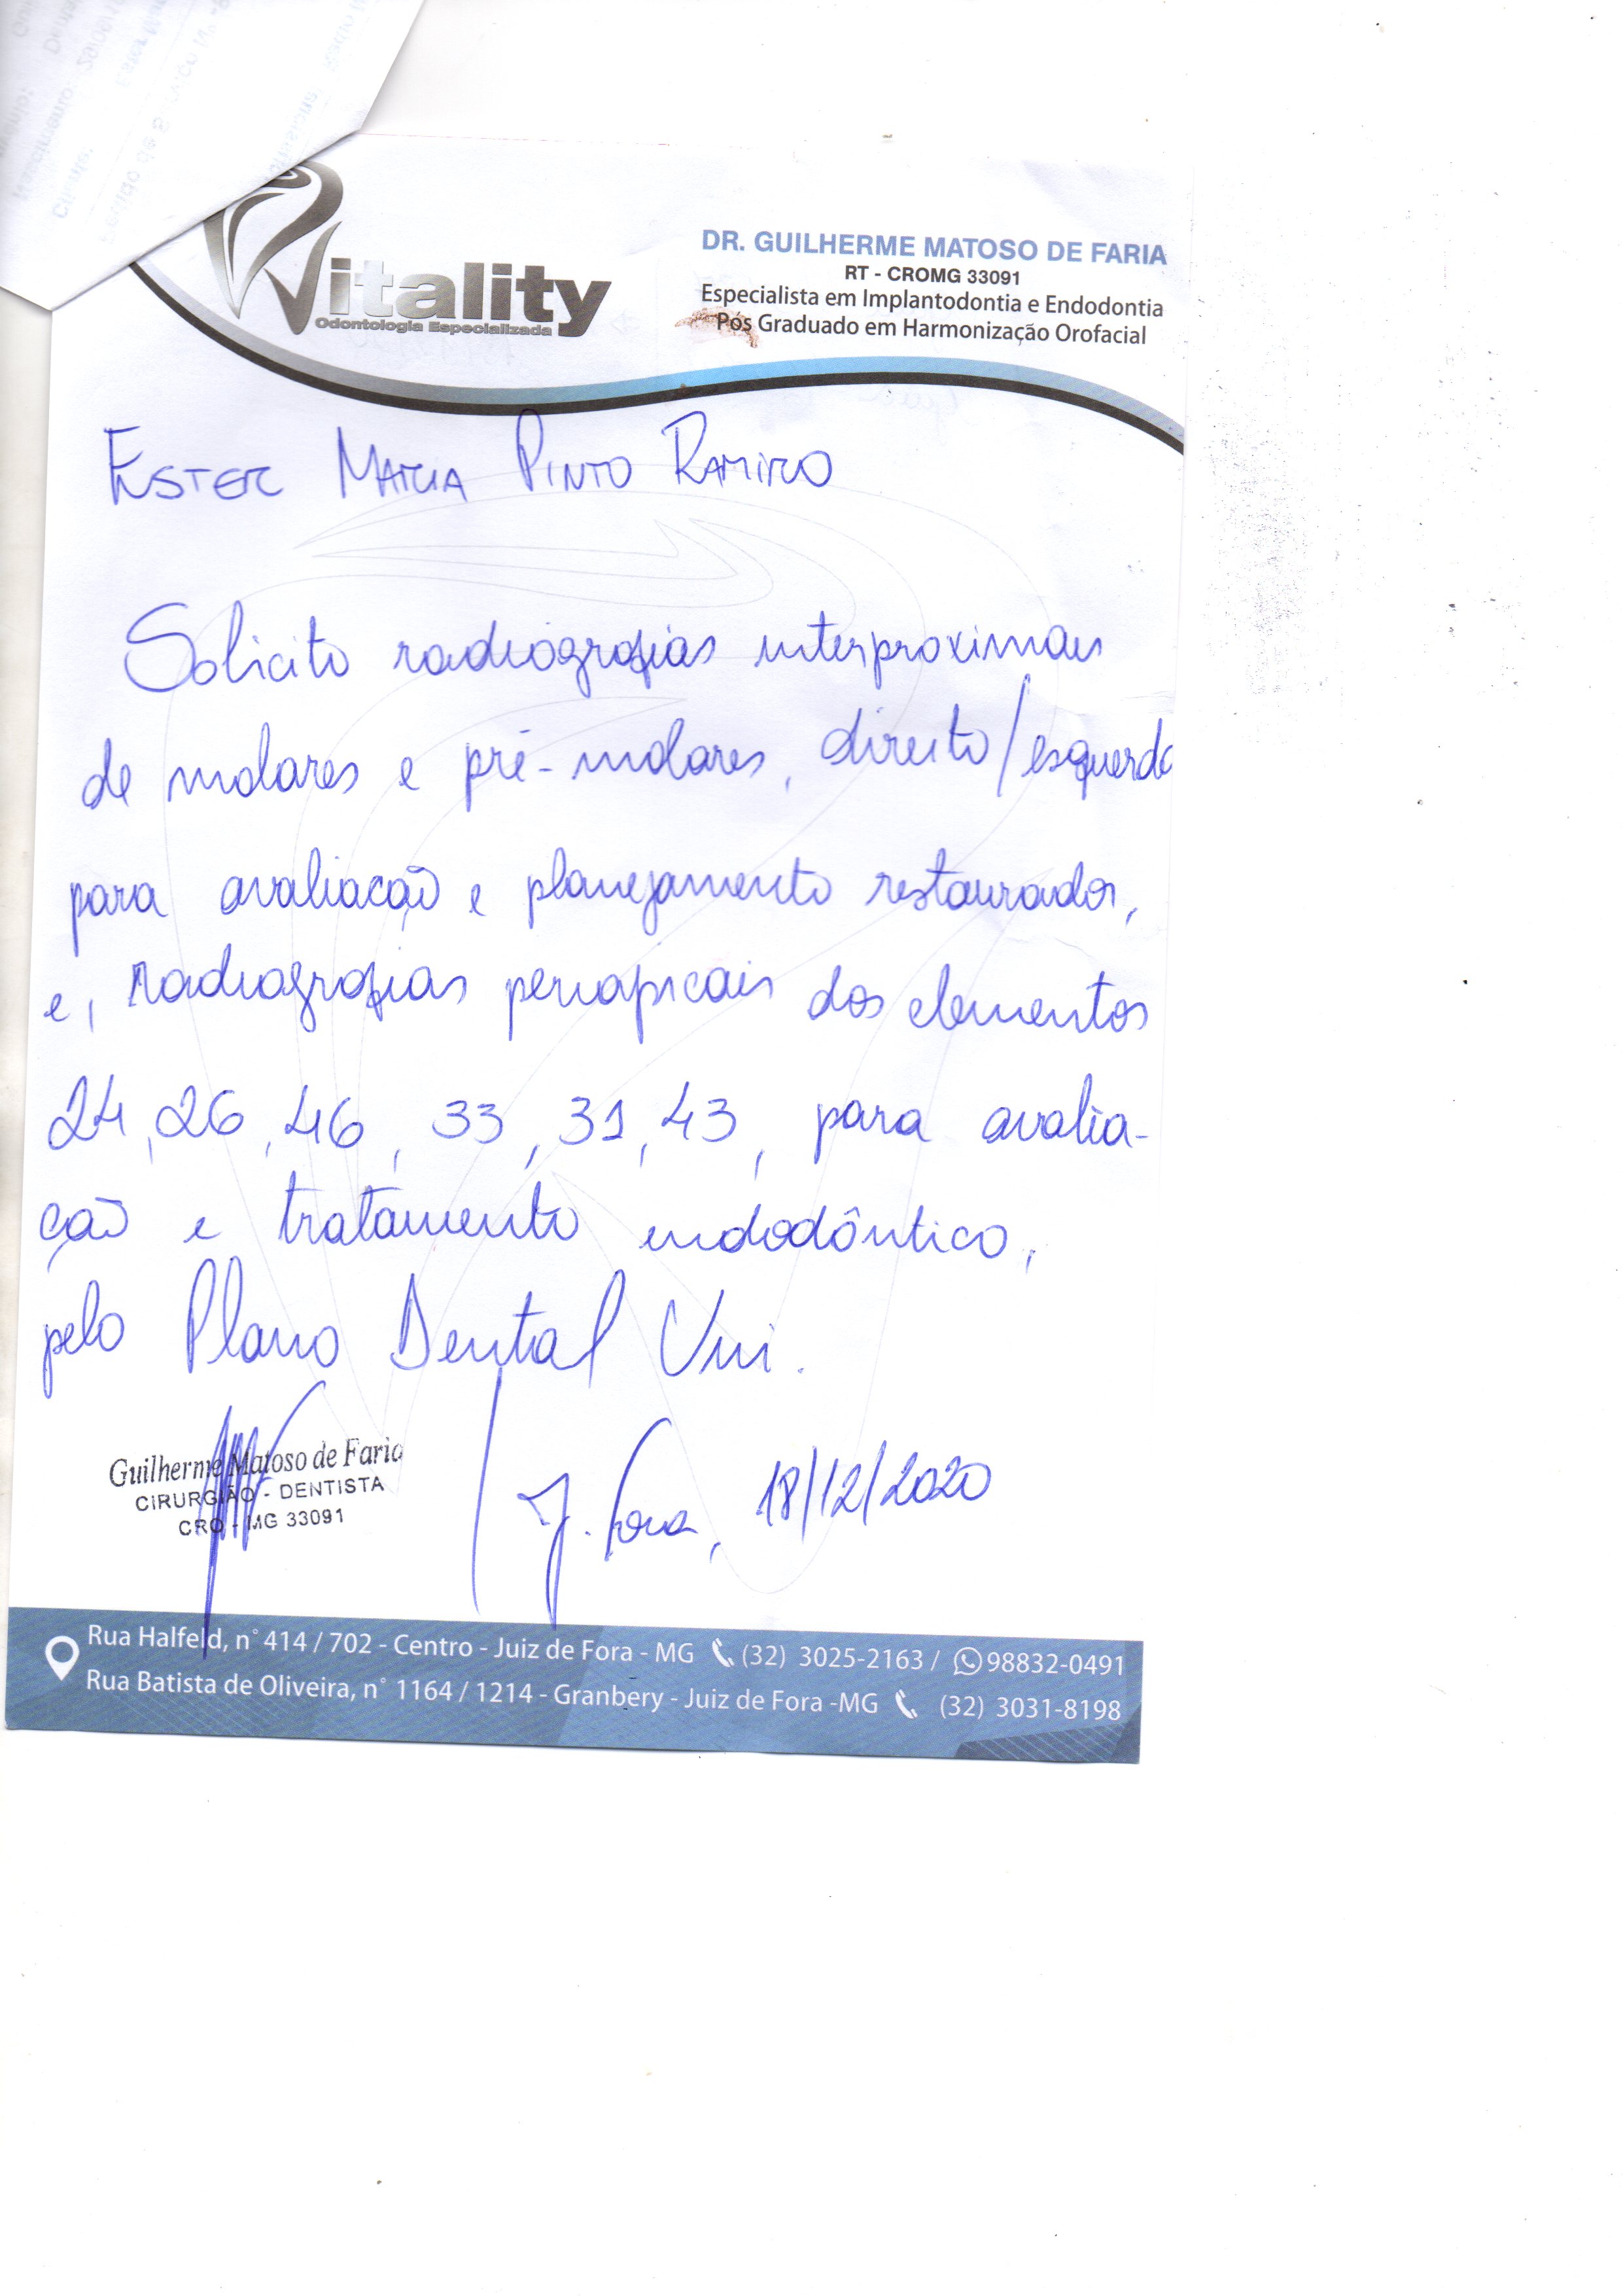 Vitality
Odontologia Especializada
DR. GUILHERME MATOSO DE FARIA
RT - CROMG 33091
Especialista em Implantodontia e Endodontia
Pós Graduado em Harmonização Orofacial
ESTER MARIA PINTO RAMIRO
Solicito radiografias interproximais
de molares e pré-molares, direito/esquerdo
para avaliação e planejamento restaurador,
e, radiografias periapicais dos elementos
24, 26, 46, 33, 31, 43, para avalia-
ção e tratamento endodôntico,
pelo Plano Dental Uni.
Guilherme Matoso de Faria
CIRURGIÃO - DENTISTA
CRO - MG 33091
J. Fora, 18/12/2020
Rua Halfeld, n° 414 / 702 - Centro - Juiz de Fora - MG (32) 3025-2163 / 98832-0491
Rua Batista de Oliveira, n° 1164 / 1214 - Granbery - Juiz de Fora -MG (32) 3031-8198